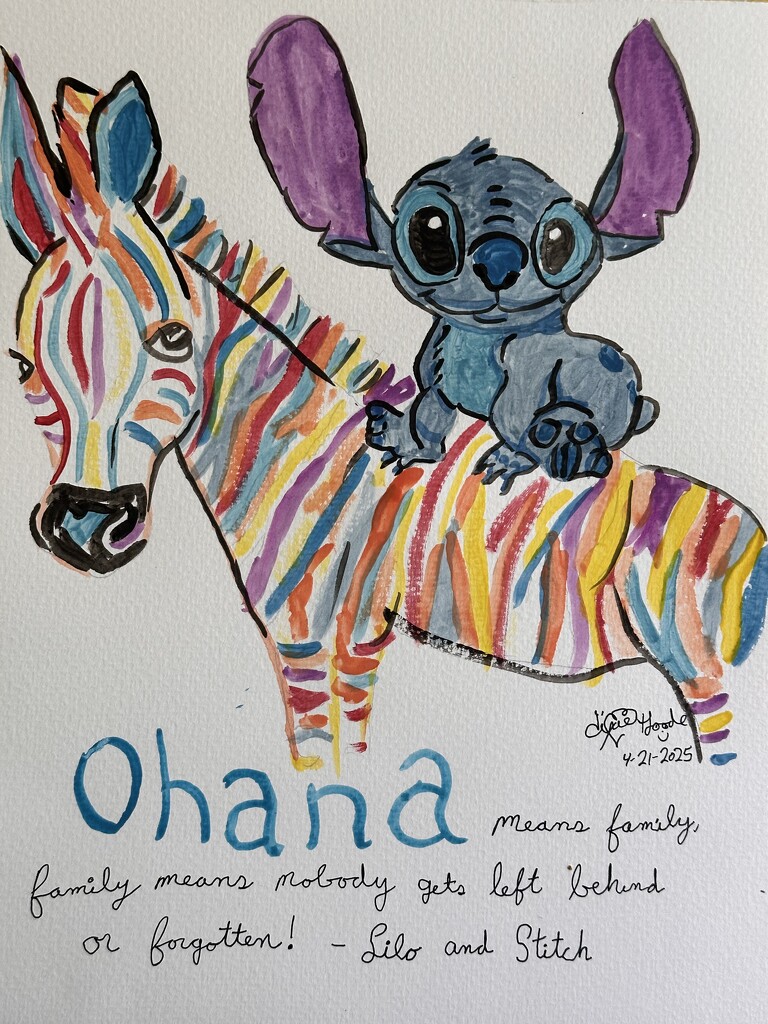 Dixie Goode
4-21-2025
Ohana means family,
family means nobody gets left behind
or forgotten! - Lilo and Stitch